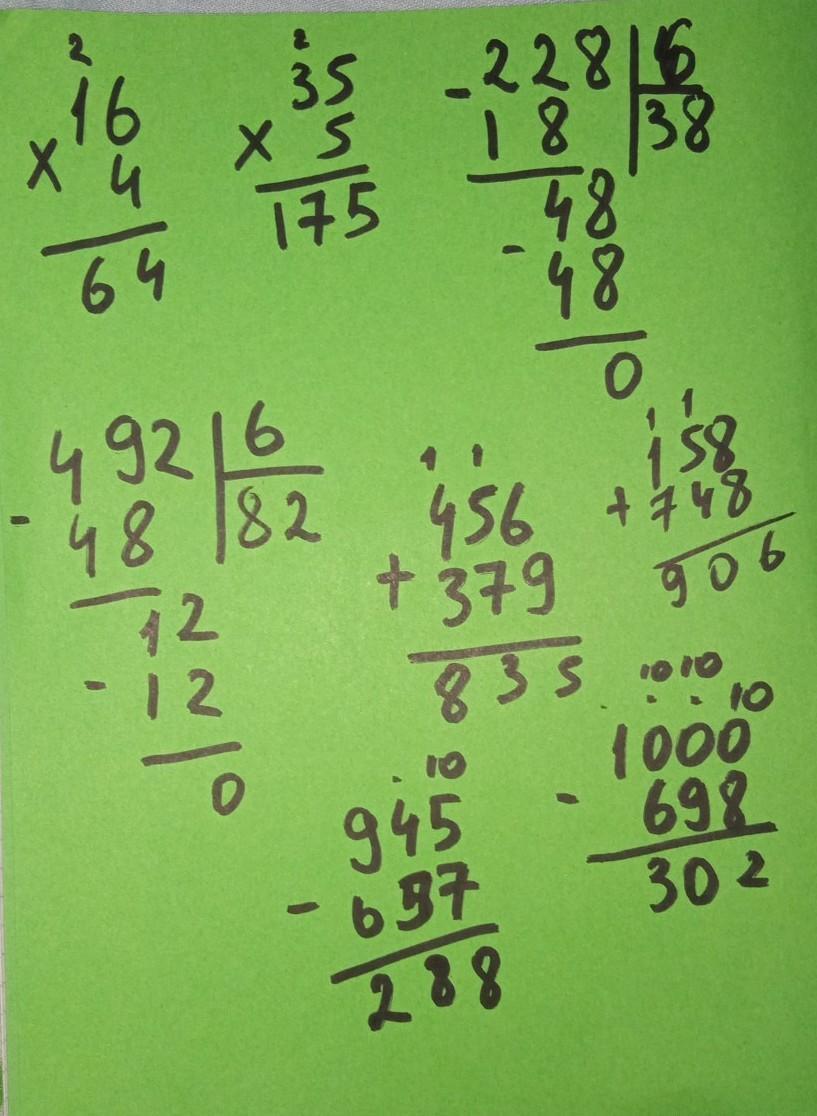 2
16
× 4
64
2
35
× 5
175
- 228 | 6
18 | 38
48
- 48
0
- 492 | 6
48 | 82
12
- 12
0
1 1
456
+ 379
835
1 1
158
+ 748
906
. 10
945
- 657
288
10 10
. . . 10
1000
- 698
302